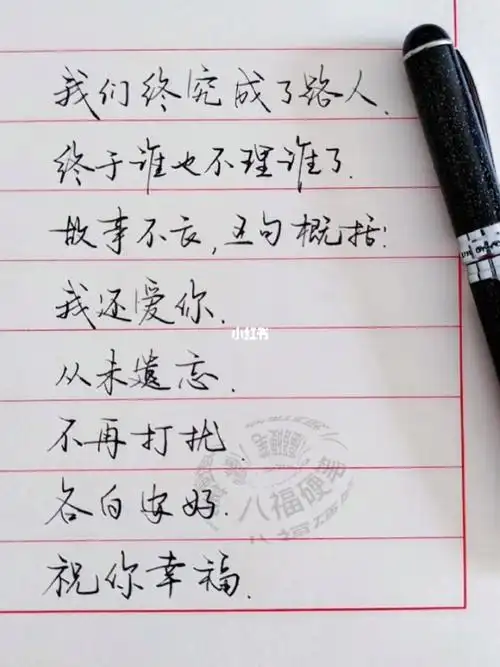 我们终究成了路人.
终于谁也不理谁了.
故事不长,五句概括:
我还爱你.
从未遗忘.
不再打扰.
各自安好.
祝你幸福.
小红书
八福硬笔